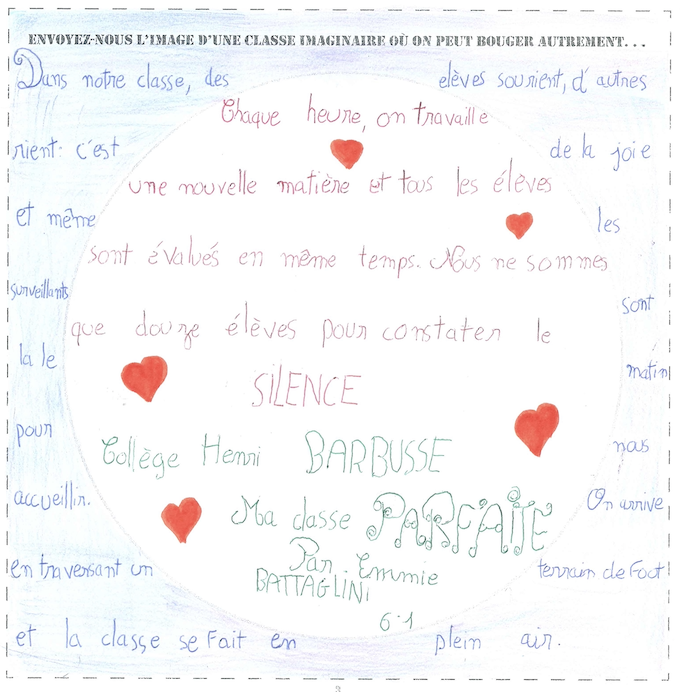 ENVOYEZ-NOUS L'IMAGE D'UNE CLASSE IMAGINAIRE OÙ ON PEUT BOUGER AUTREMENT...
Dans notre classe, des elèves sourient, d'autres
rient: c'est de la joie
et même les
surveillants sont
la le matin
pour nous
accueillir. On arrive
en traversant un terrain de Foot
et la classe se Fait en plein air.
Chaque heure, on travaille
une nouvelle matière et tous les élèves
sont évalués en même temps. Nous ne sommes
que douze élèves pour constater le
SILENCE
Collège Henri BARBUSSE
Ma classe PARFAITE
Par Emmie
BATTAGLINI
6.1
3